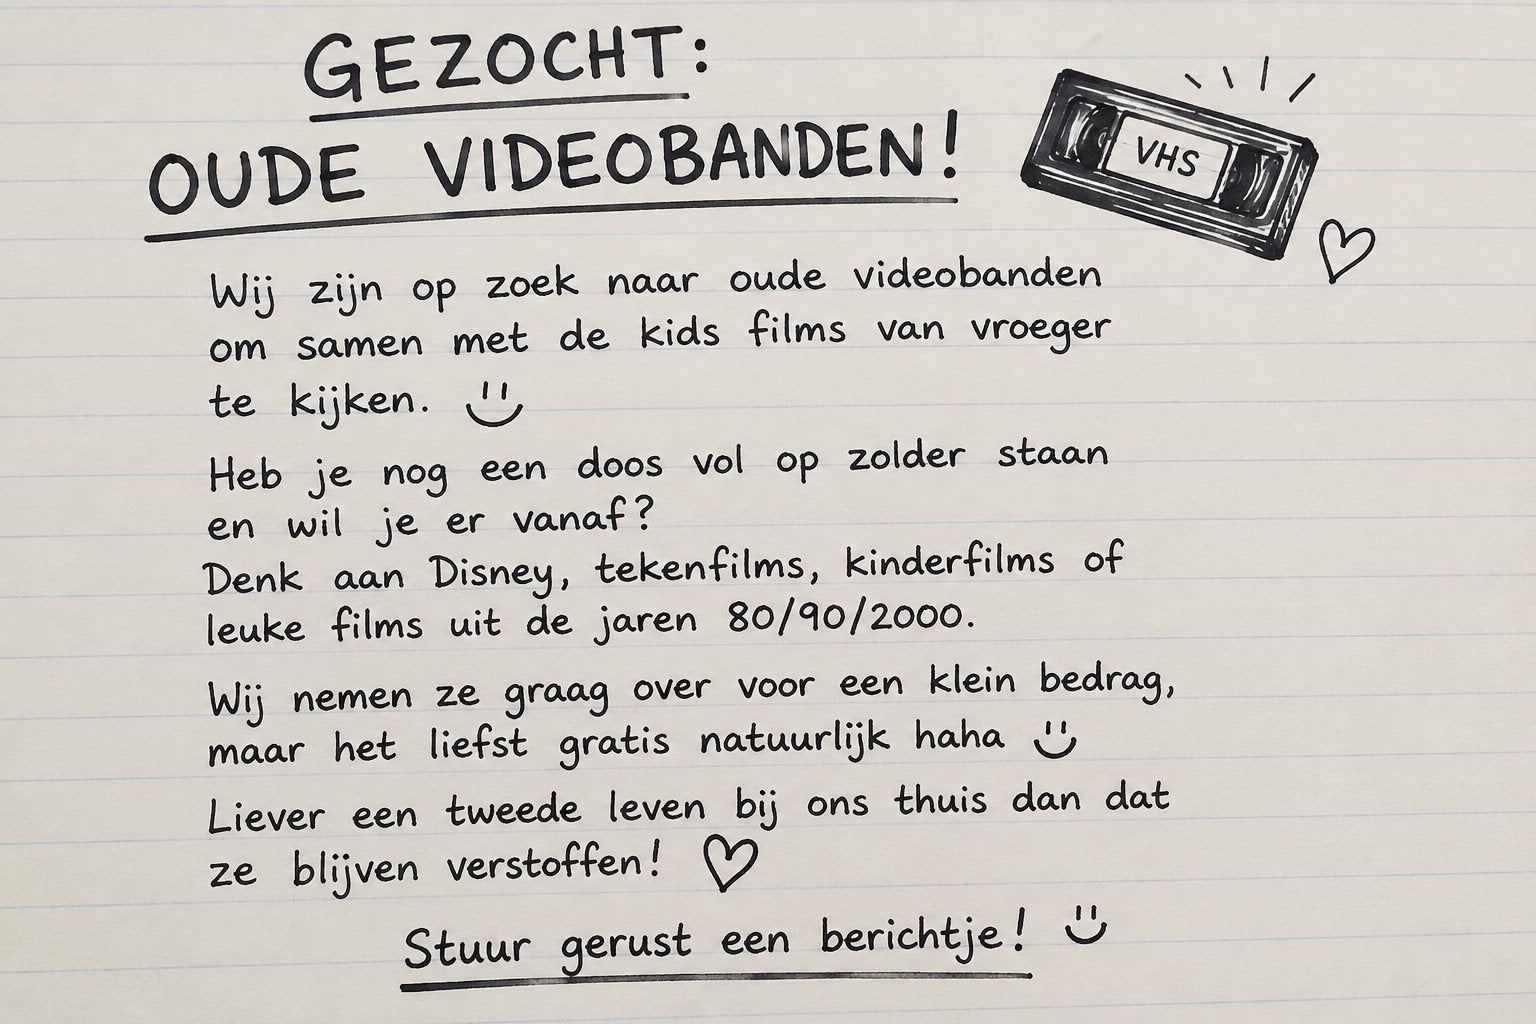 GEZOCHT:
OUDE VIDEOBANDEN!
VHS
Wij zijn op zoek naar oude videobanden
om samen met de kids films van vroeger
te kijken.
Heb je nog een doos vol op zolder staan
en wil je er vanaf?
Denk aan Disney, tekenfilms, kinderfilms of
leuke films uit de jaren 80/90/2000.
Wij nemen ze graag over voor een klein bedrag,
maar het liefst gratis natuurlijk haha
Liever een tweede leven bij ons thuis dan dat
ze blijven verstoffen!
Stuur gerust een berichtje!